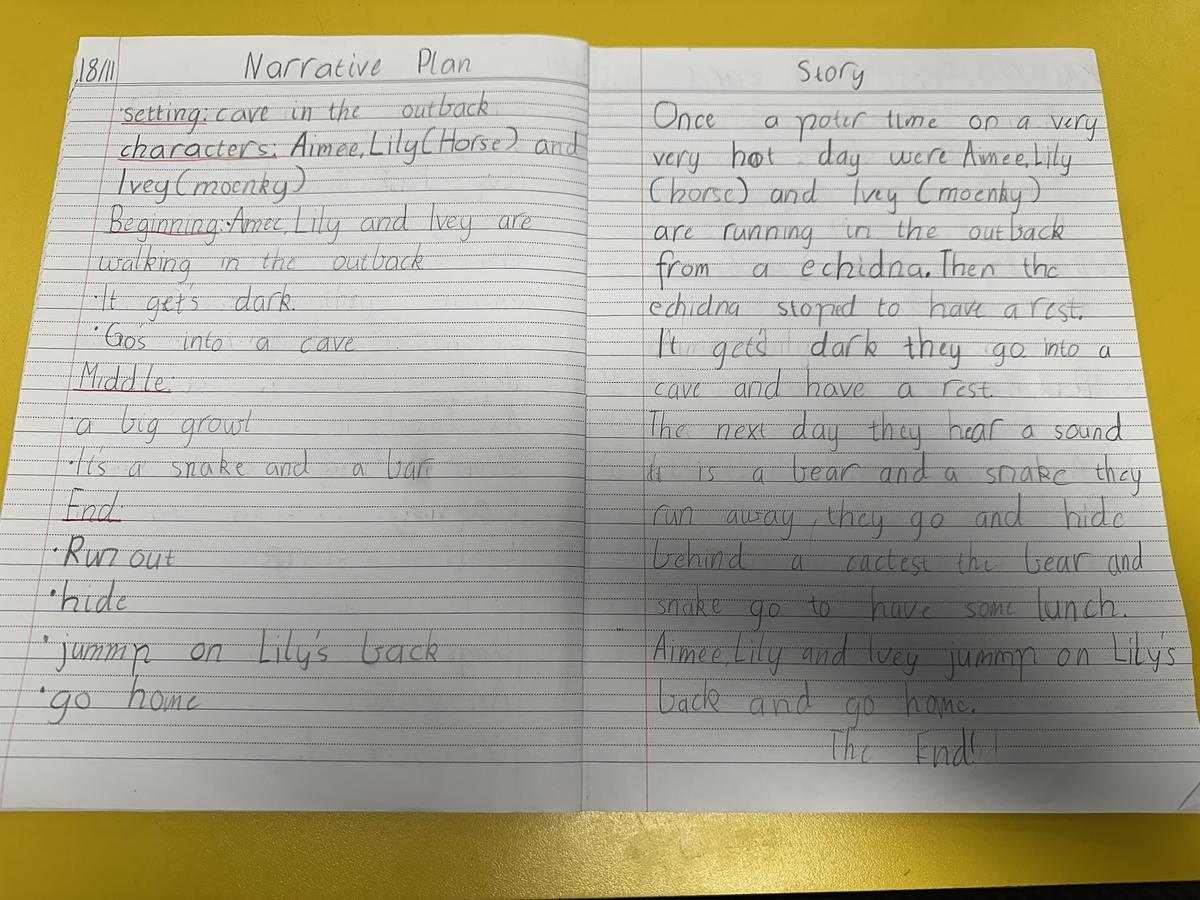 18/11
Narrative Plan
setting: cave in the outback
characters: Aimee, Lily (Horse) and
Ivey (moenky)
Beginning: Amee, Lily and Ivey are
walking in the outback
·It get's dark.
·Go's into a cave
Middle:
·a big growl
·It's a snake and a bar
End:
·Run out
·hide
·jummp on Lily's back
·go home
Story
Once a poter time on a very
very hot day were Aimee, Lily
(horse) and Ivey (moenky)
are running in the outback
from a echidna. Then the
echidna stoped to have a rest.
It get's dark they go into a
cave and have a rest.
The next day they hear a sound
it is a bear and a snake they
run away, they go and hide
behind a cactest the bear and
snake go to have some lunch.
Aimee, Lily and Ivey jummp on Lily's
back and go home.
The End!